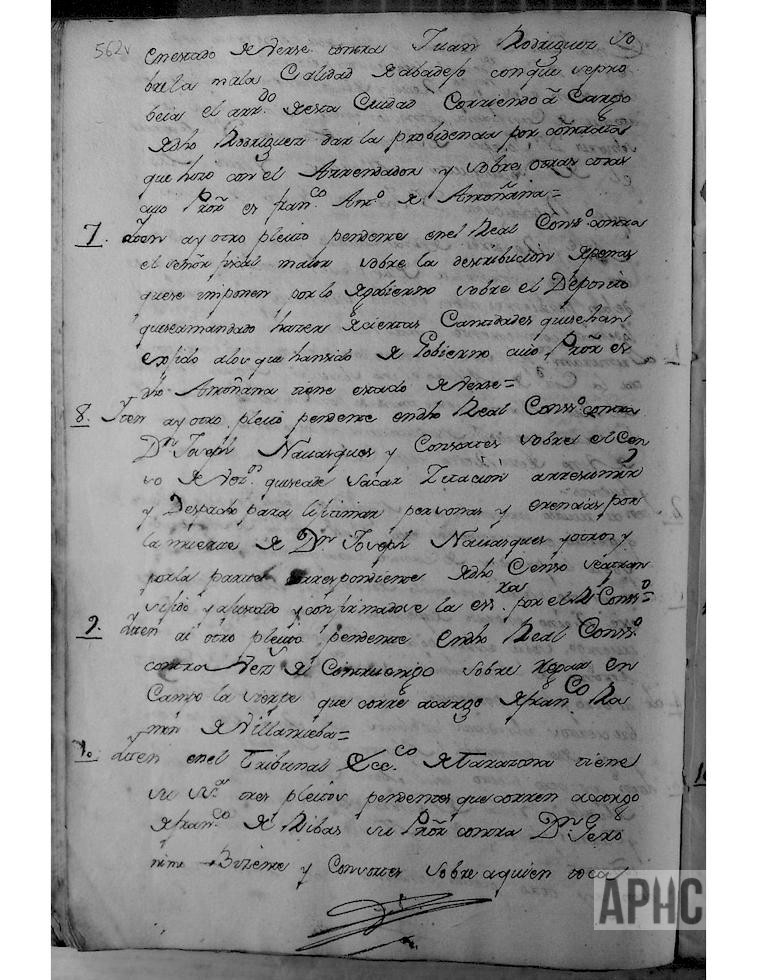 562v
en estado de verse contra Juan Rodriguez so
bre la mala Calidad de abadejo con que se pro
beia el arr.do de esta Ciudad Corriendo a Cargo
de dho Rodriguez dar la probidencia por contrata
que hizo con el Arrendador y sobre otras cosas
cuio Pror es fran.co Ant.o de Amoñana=
7. Iten ay otro pleito pendente en el Real Conss.o contra
el señor fiscal maior sobre la destribucion de penas
que se imponen por lo de gobierno sobre el Deposito
que se a mandado hazer de ciertas Cantidades que se han
exijido a los que han sido de Gobierno cuio Pror es
dho Amoñana tiene estado de verse=
8. Iten ay otro pleito pendente en dho Real Conss.o contra
Dn Joseph Nauasques y Consortes sobre el Cen
so de que se a de sacar Zitacion
y Despacho para lixitimar personas y erencias por
la muerte de Dn Joseph Nauasques y otros y
por la parte correspondiente de dho Censo
y ajustado y confirmadose la ess.ra por el Rl Conss.o=
9. Iten ai otro pleito pendente en dho Real Conss.o
contra Vez.s de Cintruenigo sobre
Campo la que corre a cargo de fran.co Ra
mon de Villanueba=
10. Iten en el Tribunal Ecc.co de Tarazona tiene
su tres pleitos pendentes que corren a cargo
de fran.co de Ribas su Pror contra Dn Gero
nimo Bizente y Consortes sobre a quien toca
APHC